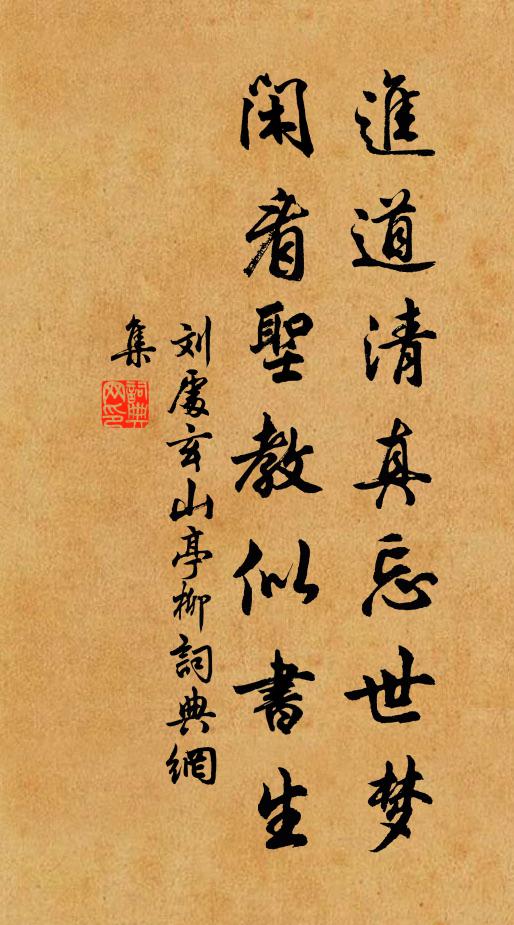 進道清真忘世梦
閑看聖教似書生
刘處玄山亭柳詞典網
集
詞典网印